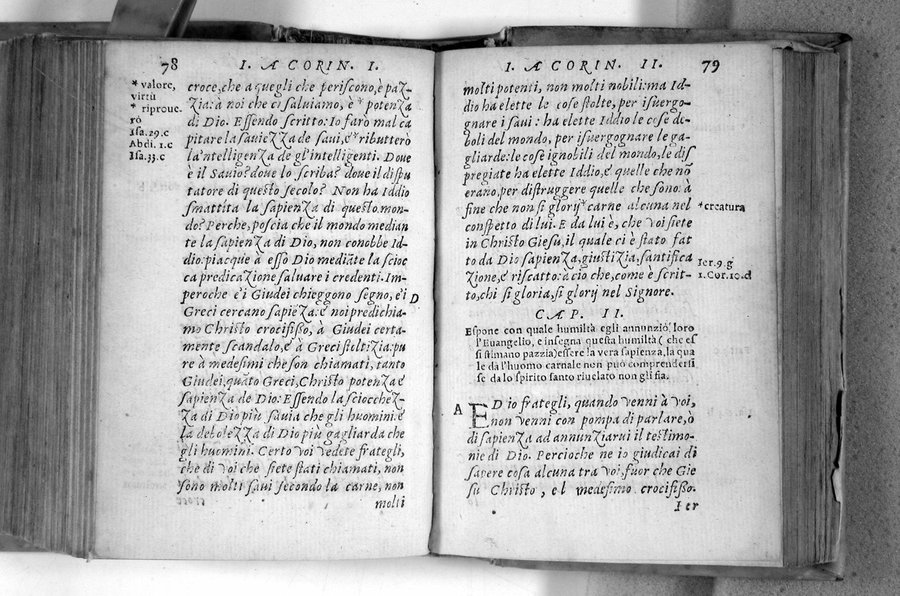 78 I. A CORIN. I.
* valore,
virtù
* riprove.
rò
Isa.29.c
Abdi. 1.c
Isa.33.c
croce, che a quegli che periscono, è paz-
zia: à noi che ci salviamo, è * potenza
di Dio. Essendo scritto: Io farò mal ca
pitare la saviezza de savi, e * ributterò
la'ntelligenza de gl'intelligenti. Dove
è il Savio? dove lo scriba? dove il dispu
tatore di questo secolo? Non ha Iddio
smattita la sapienza di questo mon-
do? Perche, poscia che il mondo median
te la sapienza di Dio, non conobbe Id-
dio: piacque à esso Dio mediāte la scioc
ca predicazione salvare i credenti. Im-
peroche e'i Giudei chieggono segno, e'i
D
Greci cercano sapiēza: e noi predichia-
mo Christo crocifisso, à Giudei certa-
mente scandalo, e à Greci stoltizia: pu
re à medesimi che son chiamati, tanto
Giudei, quāto Greci, Christo potenza e
sapienza de Dio: Essendo la sciochez-
za di Dio più savia che gli huomini: e
la debolezza di Dio più gagliarda che
gli huomini. Certo voi vedete frategli,
che di voi che siete stati chiamati, non
sono molti savi secondo la carne, non
molti
I. A CORIN. II. 79
molti potenti, non molti nobili: ma Id-
dio ha elette le cose stolte, per isvergo-
gnare i savi: ha elette Iddio le cose de-
boli del mondo, per isvergognare le ga-
gliarde: le cose ignobili del mondo, le dis
pregiate ha elette Iddio, e quelle che nō
erano, per distruggere quelle che sono: à
fine che non si glorij * carne alcuna nel
* creatura
conspetto di lui. E da lui è, che voi siete
in Christo Giesu, il quale ci è stato fat
to da Dio sapienza, giustizia, santifica
zione, e riscatto: acio che, come è scrit-
Ier.9.g
1.Cor.10.d
to, chi si gloria, si glorij nel Signore.
CAP. II.
Espone con quale humiltà egli annunziò loro
l'Evangelio, e insegna questa humiltà ( che es
si stimano pazzia) essere la vera sapienza, la qua
le da l'huomo carnale non può comprendersi
se da lo spirito santo rivelato non gli sia.
A
ED io frategli, quando venni à voi,
non venni con pompa di parlare, ò
di sapienza ad annunziarvi il testimo-
nie di Dio. Percioche ne io giudicai di
sapere cosa alcuna tra voi, fuor che Gie
su Christo, e'l medesimo crocifisso.
Ier